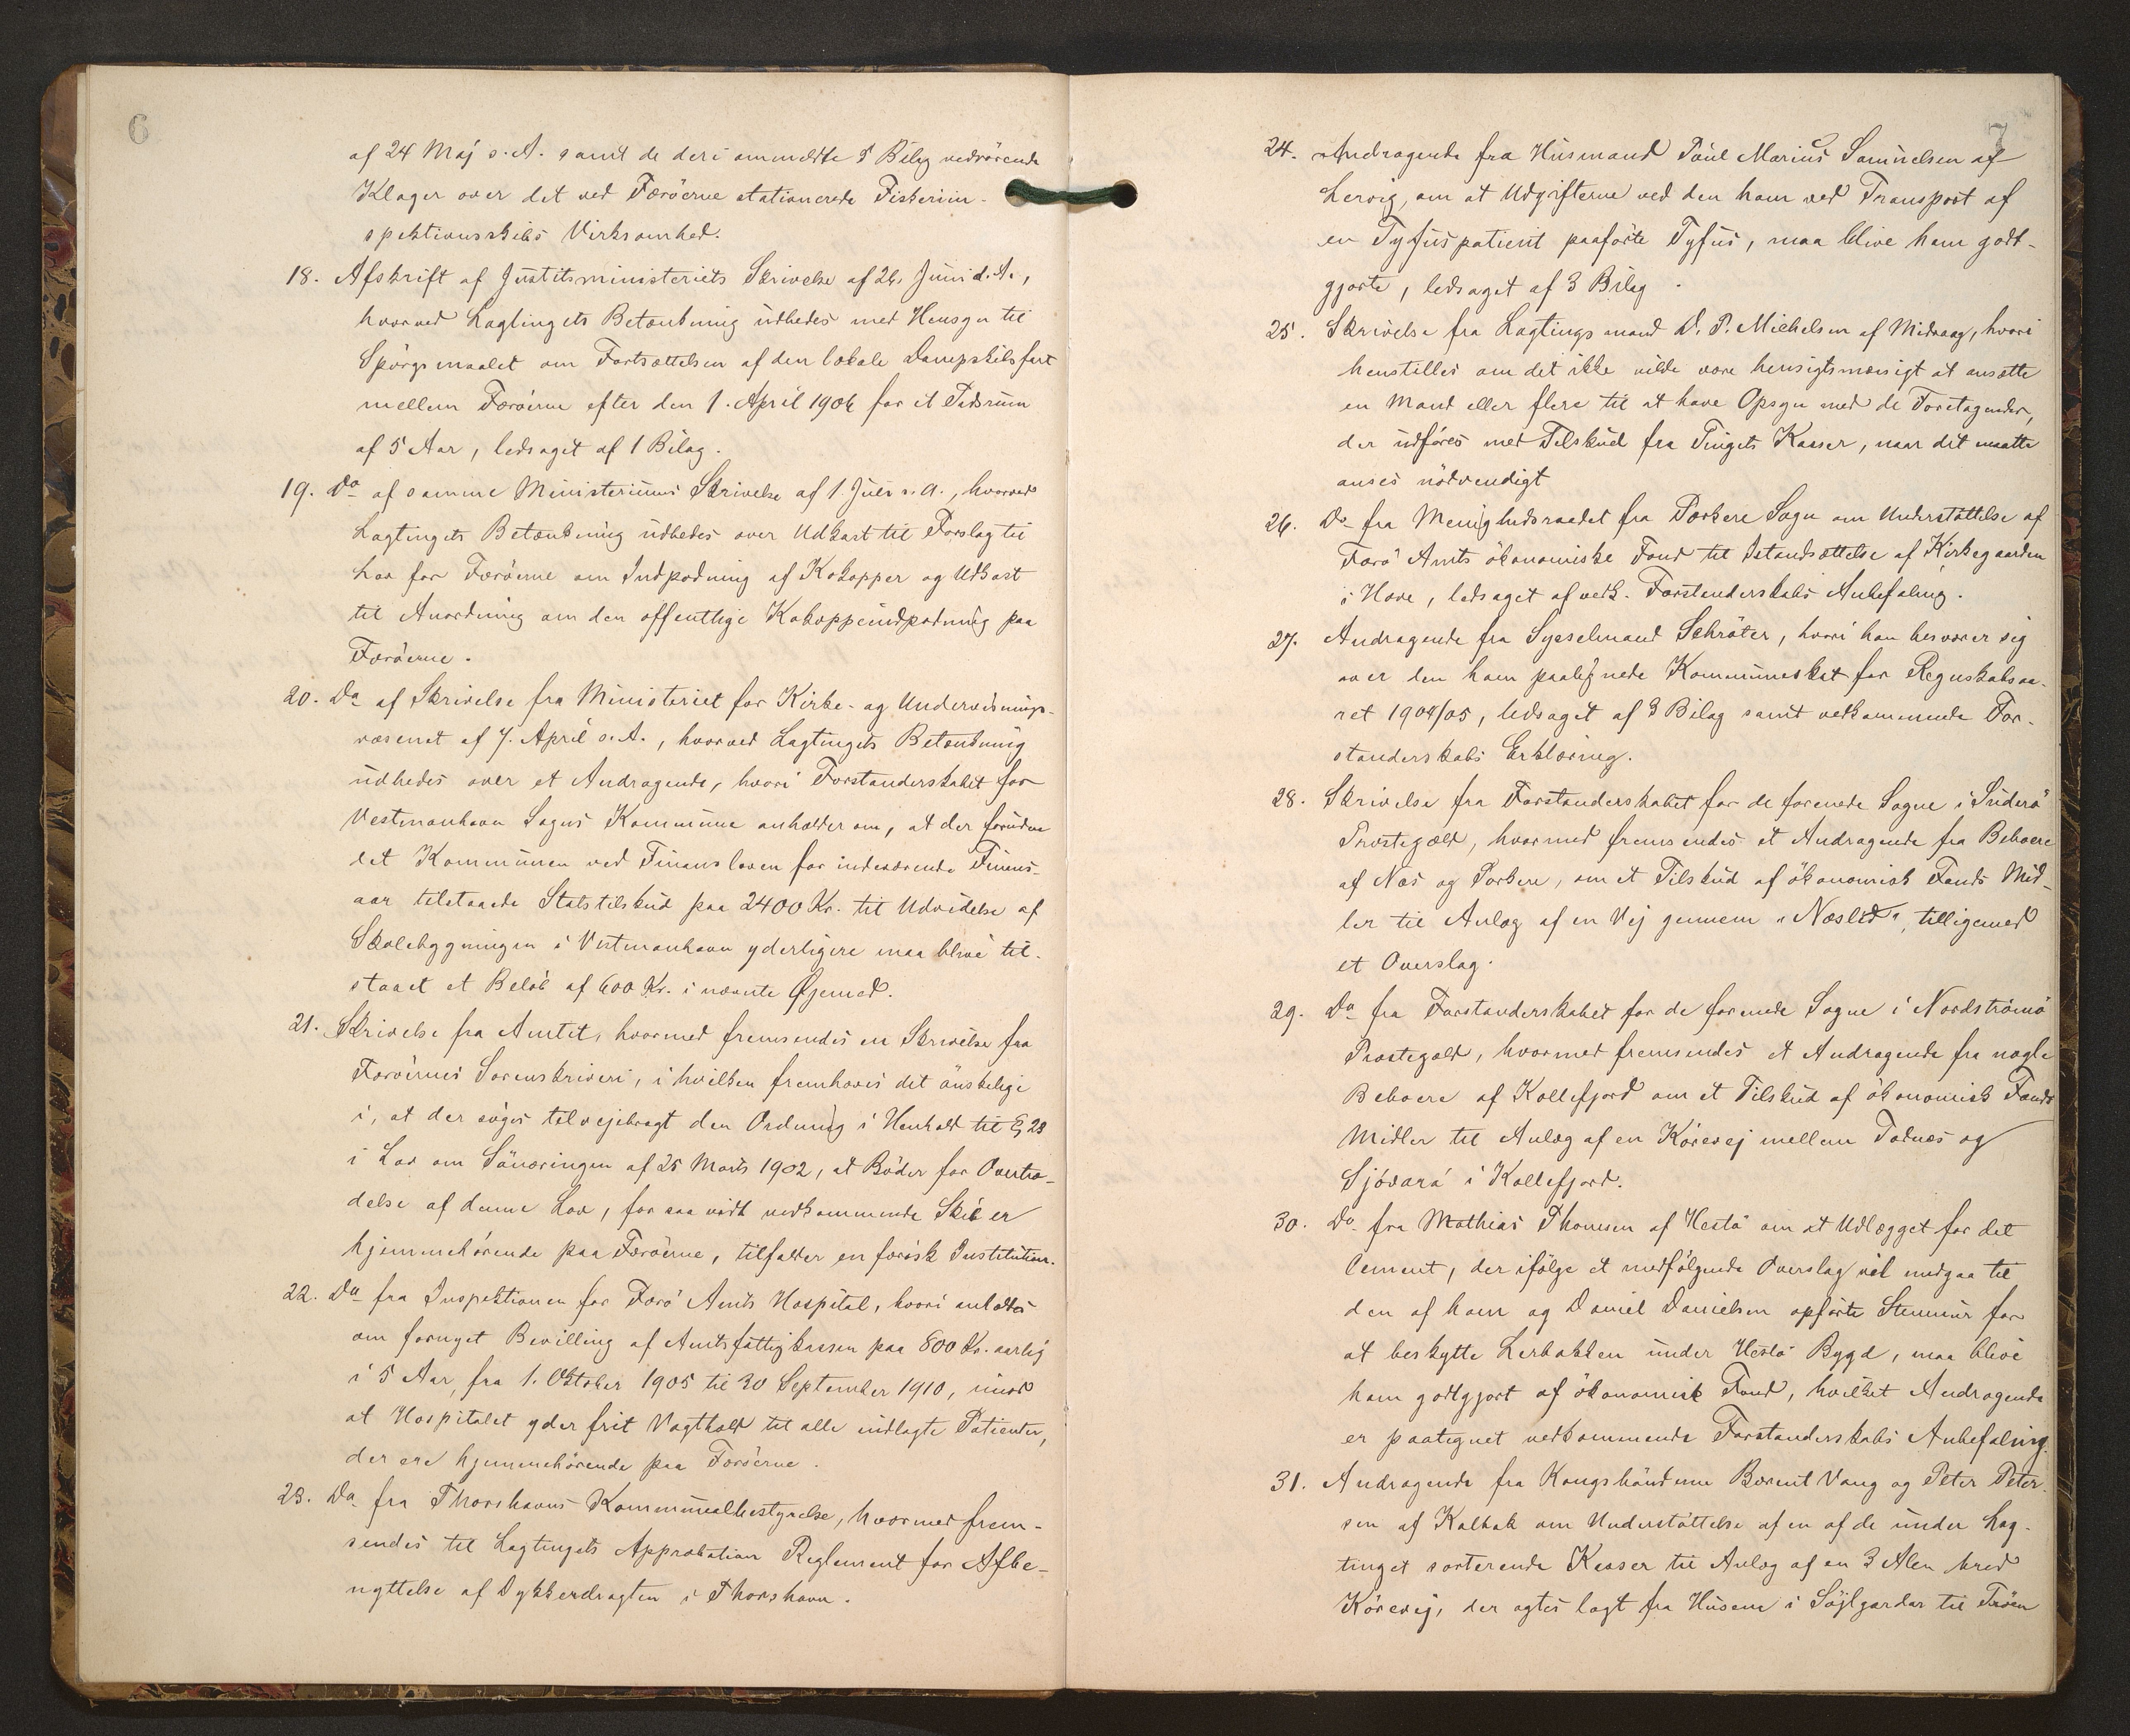 6
af 24 Maj s. A. samt de deri ommeldte 8 Bilag vedrörende
Klager over det ved Færöerne stationerede Fiskeriin-
spektionsskibs Virksomhed.
18. Afskrift af Justitsministeriets Skrivelse af 26. Juni d. A.,
hvorved Lagtingets Betænkning udbedes med Hensyn til
Spörgsmaalet om Fortsættelsen af den lokale Dampskibsfart
mellem Færöerne efter den 1. April 1906 for et Tidsrum
af 5 Aar, ledsaget af 1 Bilag.
19. Do af samme Ministeriums Skrivelse af 1. Juli s. A., hvorved
Lagtingets Betænkning udbedes over Udkast til Forslag til
Lov for Færöerne om Indpodning af Kokopper og Udkast
til Anordning om den offentlige Kokoppeindpodning paa
Færöerne.
20. Do af Skrivelse fra Ministeriet for Kirke- og Undervisnings-
væsenet af 7. April s. A., hvorved Lagtingets Betænkning
udbedes over et Andragende, hvori Forstanderskabet for
Vestmanhavn Sogns Kommune anholder om, at der foruden
det Kommunen ved Finansloven for indeværende Finans-
aar tilstaaede Statstilskud paa 2400 Kr. til Udvidelse af
Skolebygningen i Vestmanhavn yderligere maa blive til-
staaet et Belöb af 600 Kr. i nævnte Öjemed.
21. Skrivelse fra Amtet, hvormed fremsendes en Skrivelse fra
Færöernes Sorenskriveri, i hvilken fremhæves det önskelige
i, at der söges tilvejebragt den Ordning i Henhold til § 23
i Lov om Sönæringen af 25 Marts 1902, at Böder for Overtræ-
delse af denne Lov, for saa vidt vedkommende Skib er
hjemmehörende paa Færöerne, tilfalder en færösk Institution.
22. Do fra Inspektionen for Færö Amts Hospital, hvori anholdes
om fornyet Bevilling af Amtsfattigkassen paa 800 Kr. aarlig
i 5 Aar, fra 1. Oktober 1905 til 30 September 1910, imod
at Hospitalet yder frit Vagthold til alle indlagte Patienter,
der ere hjemmehörende paa Færöerne.
23. Do fra Thorshavns Kommunalbestyrelse, hvormed frem-
sendes til Lagtingets Approbation Reglement for Afbe-
nyttelse af Dykkerdragten i Thorshavn.
7
24. Andragende fra Husmand Poul Marius Samuelsen af
Lervig, om at Udgifterne ved den ham ved Transport af
en Tyfuspatient paaförte Tyfus, maa blive ham godt-
gjorte, ledsaget af 3 Bilag.
25. Skrivelse fra Lagtingsmand D. P. Michelsen af Midvaag, hvori
henstilles om det ikke vilde være hensigtsmæssigt at ansætte
en Mand eller flere til at have Opsyn med de Foretagender,
der udföres med Tilskud fra Tingets Kasser, naar det maatte
anses nödvendigt
26. Do fra Menighedsraadet fra Porkere Sogn om Understöttelse af
Færö Amts ökonomiske Fond til Istandsættelse af Kirkegaarden
i Hove, ledsaget af vedk. Forstanderskabs Anbefaling.
27. Andragende fra Sysselmand Schröter, hvori han besværer sig
over den ham paalignede Kommuneskat for Regnskabsaa-
ret 1904/05, ledsaget af 3 Bilag samt vedkommende For-
standerskabs Erklæring.
28. Skrivelse fra Forstanderskabet for de forenede Sogne i Suderö
Præstegæld, hvormed fremsendes et Andragende fra Beboere
af Næs og Porkere, om et Tilskud af ökonomisk Fonds Mid-
ler til Anlæg af en Vej gennem "Næslid", tilligemed
et Overslag.
29. Do fra Forstanderskabet for de forenede Sogne i Nordströmö
Præstegæld, hvormed fremsendes et Andragende fra nogle
Beboere af Kollefjord om et Tilskud af ökonomisk Fonds
Midler til Anlæg af en Körevej mellem Todnæs og
Sjóvará i Kollefjord.
30. Do fra Mathias Thomsen af Hestö om at Udlægget for det
Cement, der ifölge et medfölgende Overslag vil medgaa til
den af ham og Daniel Danielsen opförte Stenmur for
at beskytte Lerbakken under Hestö Bygd, maa blive
ham godtgjort af ökonomisk Fond, hvilket Andragende
er paategnet vedkommende Forstanderskabs Anbefaling.
31. Andragende fra Kongsbönderne Bærent Vang og Peter Peter-
sen af Kalbak om Understöttelse af en af de under Lag-
tinget sorterende Kasser til Anlæg af en 3 Alen bred
Körevej, der agtes lagt fra Husene i Sýlgardar til